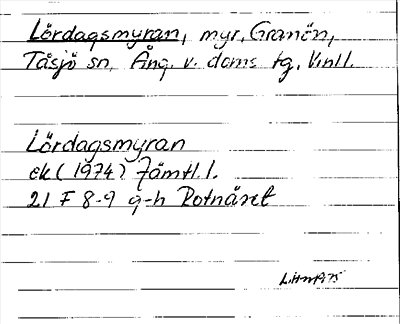 Lördagsmyran, myr, Granön,
Tåsjö sn, Ång. v. doms tg, Vnll.
Lördagsmyran
ek (1974) Jämtl. l.
21 F 8-9 g-h Rotnäset